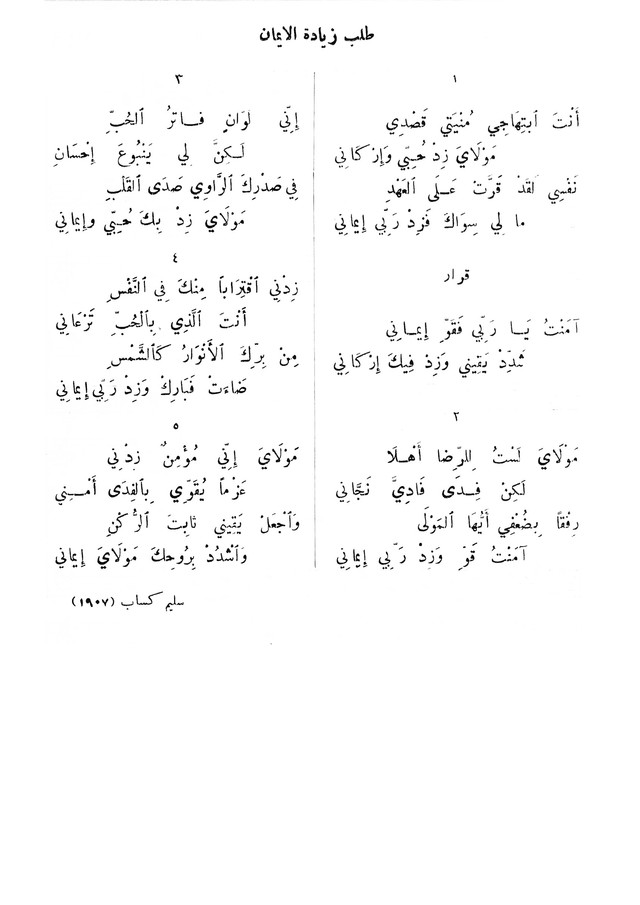 طلب زيادة الايمان
١
أَنْتَ ٱبتِهَاجِي مُنْيَتِي قَصْدِي
مَوْلَايَ زِدْ حُبِّي وَإِرْكَانِي
نَفْسِي لَقَدْ قَرَّتْ عَلَى ٱلعَهْدِ
ما لِي سِوَاكَ فَزِدْ رَبِّي إِيمَانِي
قرار
آمَنْتُ يَا رَبِّي فَقَوِّ إِيمَانِي
شَدِّدْ يَقِينِي وَزِدْ فِيكَ إِرْكَانِي
٢
مَوْلَايَ لَسْتُ لِلرِّضَا أَهْلَا
لَكِنْ فِدَى فَادِيَّ نَجَّانِي
رِفْقًا بِضُعْفِي أَيُّهَا ٱلمَوْلَى
آمَنْتُ قَوِّ وَزِدْ رَبِّي إِيمَانِي
٣
إِنِّي لَوَانٍ فَاتِرُ ٱلحُبِّ
لَكِنَّ لِي يَنْبُوعَ إِحْسَانِ
فِي صَدْرِكَ ٱلرَّاوِي صَدَى ٱلقَلْبِ
مَوْلَايَ زِدْ بِكَ حُبِّي وإِيمَانِي
٤
زِدْنِي ٱقْتِرَابًا مِنْكَ فِي ٱلنَّفْسِ
أَنْتَ ٱلَّذِي بِٱلحُبِّ تَرْعَانِي
مِنْ بِرِّكَ ٱلأَنْوَارُ كَٱلشَّمْسِ
ضَاءَتْ فَبَارِكْ وَزِدْ رَبِّي إِيمَانِي
٥
مَوْلَايَ إِنِّي مُؤْمِنٌ زِدْنِي
عَزْمًا يُقَوِّي بِٱلفِدَى أَمْنِي
وَٱجْعَلْ يَقِينِي ثَابِتَ ٱلرُّكْنِ
وَٱشْدُدْ بِرُوحِكَ مَوْلَايَ إِيمَانِي
سليم كساب (١٩٠٧)